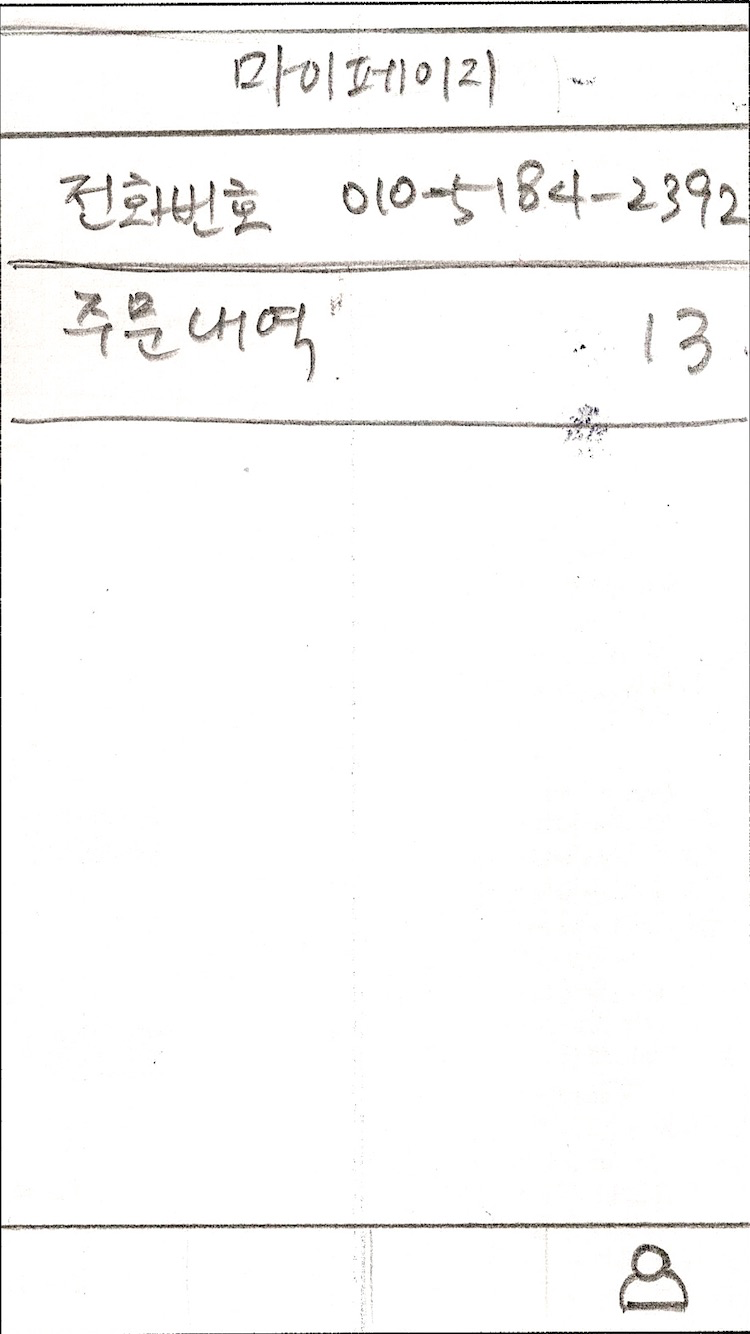 마이페이지
전화번호 010-5184-2392
주문내역 13